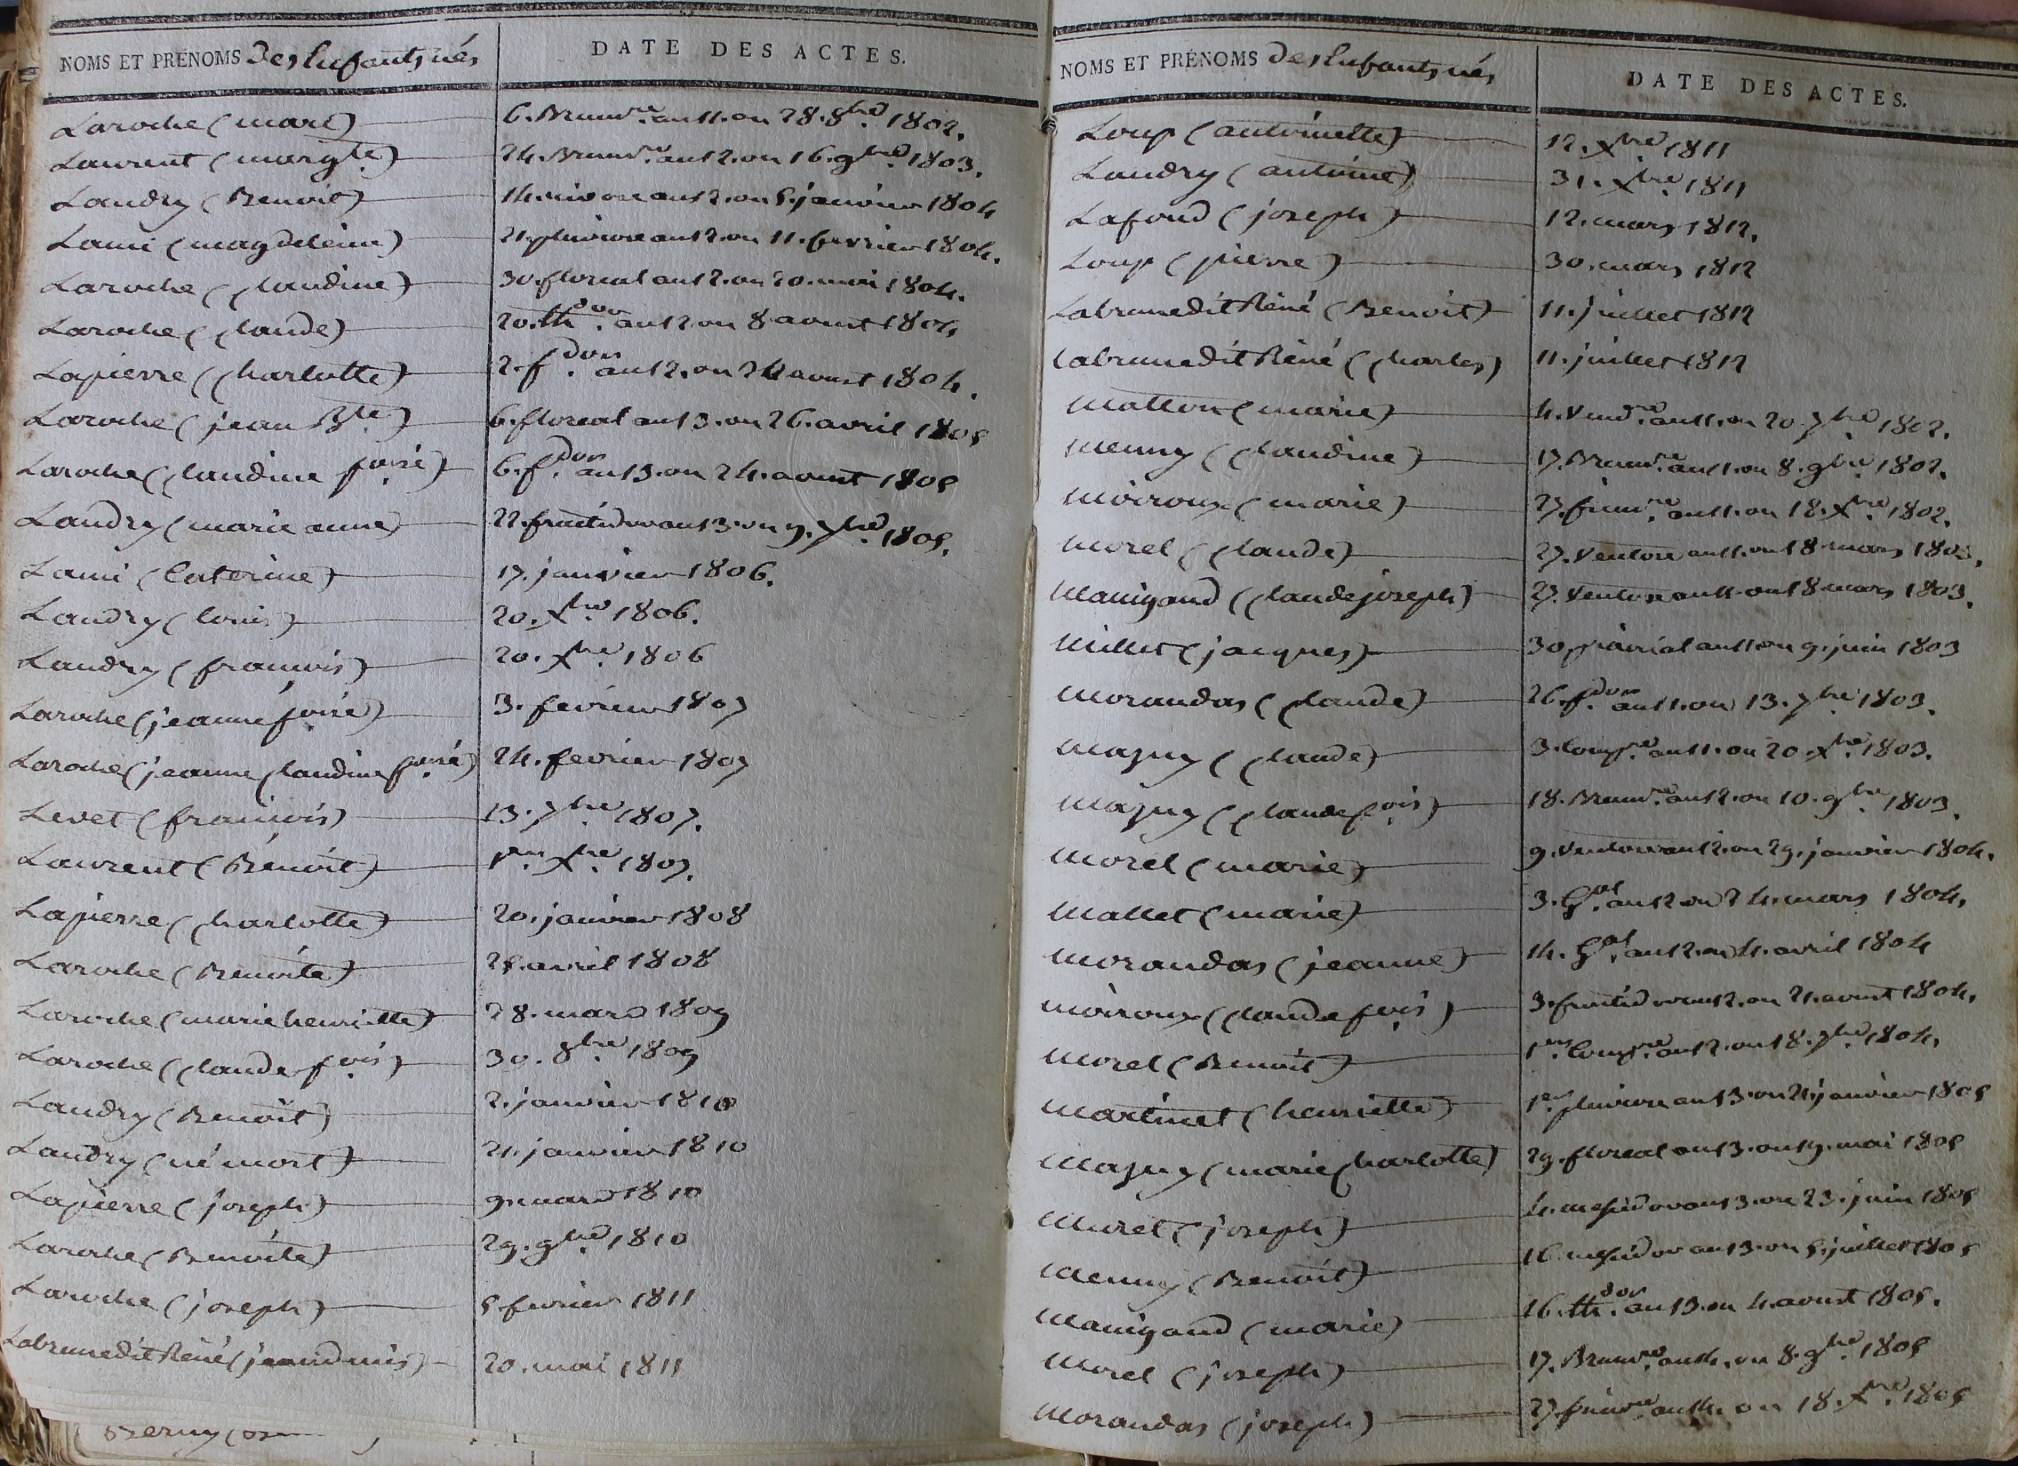 NOMS ET PRÉNOMS des Enfants nés
DATE DES ACTES.
Laroche (marc) 6. Brumre. an 11. ou 28. 8bre 1802.
Laurent (margte.) 24. Brumre. an 12. ou 16. 9bre. 1803.
Landry (Benoit) 14. nivose an 12. ou 5. janvier 1804
Lami (magdeleine) 21. pluviose an 12. ou 11. fevrier 1804.
Laroche (Claudine) 30. floreal an 12. ou 20. mai 1804.
Laroche (Claude) 20. thdor. an 12 ou 8 aoust 1804
Lapierre (Charlotte) 2. fdor. an 12. ou 24 aoust 1804.
Laroche (jean Bte.) 6. floreal an 13. ou 26. avril 1805
Laroche (Claudine foisé) 6. fdor. an 13. ou 24. aoust 1805
Landry (marie anne) 22. fructidor an 13. ou 9. 7bre. 1805.
Lami (Caterine) 17. janvier 1806.
Landry (louis) 20. Xbre. 1806.
Landry (françois) 20. Xbre. 1806
Laroche (jeanne foisé) 3. fevrier 1807
Laroche (jeanne Claudine foisé) 24. fevrier 1807
Levet (françois) 13. 7bre. 1807.
Laurent (Bénoit) 1er. Xbre. 1807.
Lapierre (Charlotte) 20. janvier 1808
Laroche (Benoite) 25. avril 1808
Laroche (marie henriette) 28. mars 1809
Laroche (Claude fois) 30. 8bre. 1809
Landry (Benoît) 2. janvier 1810
Landry (né mort) 21. janvier 1810
Lapierre (joseph) 9. mars 1810
Laroche (Benoîte) 29. 9bre. 1810
Laroche (joseph) 5 fevrier 1811
Labrune dit Réné (jean denis) 20. mai 1811
NOMS ET PRÉNOMS des Enfants nés
DATE DES ACTES.
Loup (antoinette) 12. Xbre. 1811
Landry (antoine) 31. Xbre. 1811
Lafond (joseph) 12. mars 1812.
Loup (pierre) 30. mars 1812
Labrune dit Réné (Benoit) 11. juillet 1812
Labrune dit Réné (Charles) 11. juillet 1812
Matton (marie) 4. Vendre. an 11. ou 20. 7bre 1802.
Menny (Claudine) 17. Brumre. an 11. ou 8. 9bre 1802.
Moiroux (marie) 27. frimre. an 11. ou 18. Xbre. 1802.
Morel (Claude) 27. Ventose an 11. ou 18 mars 1803.
Manigand (Claude joseph) 27. Ventose an 11. ou 18 mars 1803.
Millet (jacques) 30 prairial an 11. ou 9. juin 1803
Morandas (Claude) 26. fdor. an 11. ou 13. 7bre 1803.
Majny (Claude) 3. Compre. an 11. ou 20. Xbre. 1803.
Majny (Claude fois) 18. Brumre. an 12. ou 10. 9bre 1803.
Morel (marie) 9. Ventose an 12. ou 29. janvier 1804.
Mallet (marie) 3. Gal. an 12 ou 24. mars 1804.
Morandas (jeanne) 14. Gal. an 12. ou 4. avril 1804
Moiroux (Claude fois) 3. fructidor an 12. ou 21. aoust 1804.
Morel (Benoit) 1er. Compre. an 12. ou 18. 7bre 1804.
Martinet (henriette) 1er. pluviose an 13. ou 21. janvier 1805
Majny (marie Charlotte) 29. floreal an 13. ou 19. mai 1805
Muret (joseph) 4. messidor an 13. ou 23. juin 1805
Menny (Benoit) 16. messidor an 13. ou 5. juillet 1805
Manigand (marie) 16. thdor. an 13. ou 4. aoust 1805.
Morel (joseph) 17. Brumre. an 14. ou 8. 9bre 1805
Morandas (joseph) 27. frimre. an 14. ou 18. Xbre. 1805